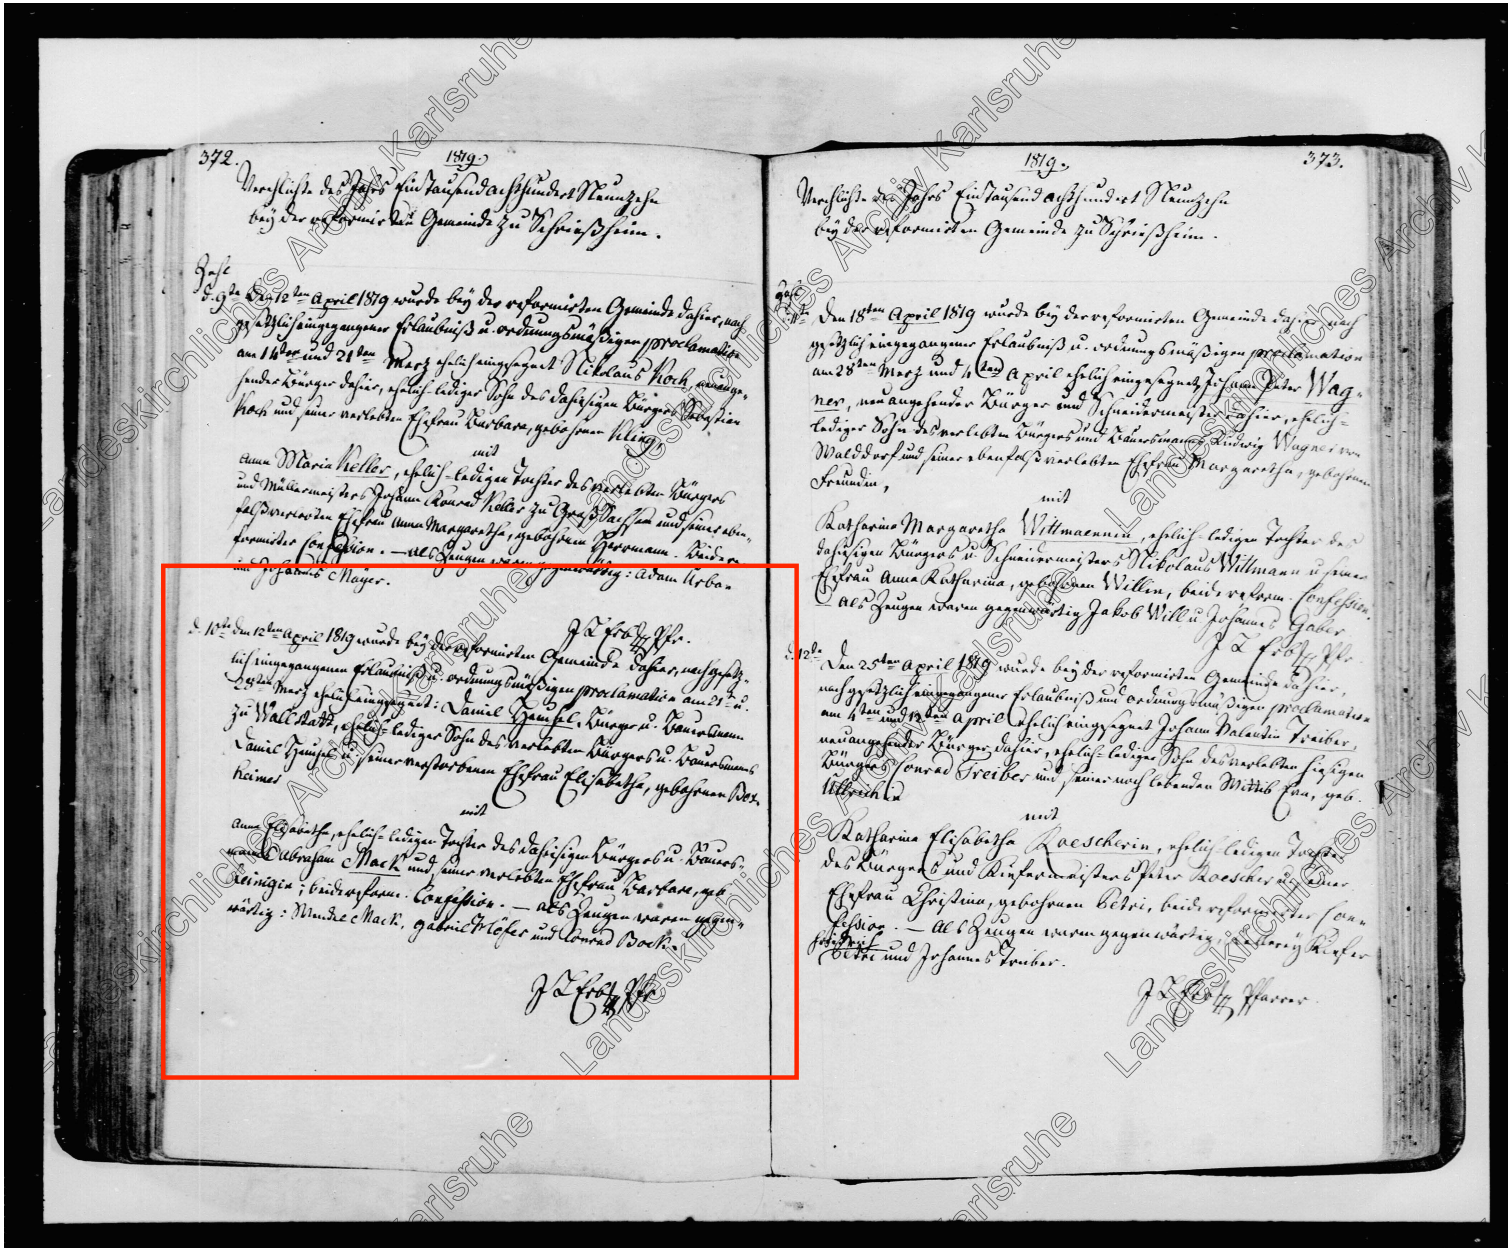 372.
1819.
Verehlichte des Jahrs Ein Tausend achthundert Neunzehn
bey der reformirten Gemeinde zu Schrießheim.
Zahl
d. 9te Den 12ten April 1819 wurde bey der reformirten Gemeinde dahier, nach
gesetzlich eingegangener Erlaubniß u. ordnungsmäßigen proclamation
am 14ten und 21ten Merz ehelich eingesegnet Nikolaus Koch, neuange-
hender Bürger dahier, ehelich-lediger Sohn des dahiesigen Bürgers Sebastian
Koch und seiner verlebten Ehefrau Barbara, gebohrnen Kling,
mit
Anna Maria Keller, ehelich-ledigen Tochter des verlebten Bürgers
und Müllermeisters Johann Konrad Keller zu Großsachsen und seiner eben-
falls verlebten Ehefrau Anna Margaretha, gebohrnen Herrmann. Beide re-
formirter Confession. — Als Zeugen waren gegenwärtig: Adam Urban
und Johannes Mayer.
J L Erb Pfr.
d. 10te Den 12ten April 1819 wurde bey der reformirten Gemeinde dahier, nach gesetz-
lich eingegangenen Erlaubniß u. ordnungsmäßigen proclamation am 21ten u.
28ten Merz ehelich eingesegnet: Daniel Heußel, Bürger u. Bauersmann
zu Wallstatt, ehelich-lediger Sohn des verlebten Bürgers u. Bauersmanns
Daniel Heußel u. seiner verstorbenen Ehefrau Elisabetha, gebohrnen Box-
heimer
mit
Anna Elisabetha, ehelich-ledigen Tochter des dahiesigen Bürgers u. Bauers-
manns Abraham Mack und seiner verlebten Ehefrau Barbara, geb.
Reinigin; beide reform. Confession. — Als Zeugen waren gegen-
wärtig: Wendel Mack, Gabriel Möser und Conrad Bock.
J L Erb Pfr.
1819.
373.
Verehlichte des Jahrs Ein Tausend achthundert Neunzehn
bey der reformirten Gemeinde zu Schrießheim.
Zahl
d. 11te Den 18ten April 1819 wurde bey der reformirten Gemeinde dahier nach
gesetzlich eingegangener Erlaubniß u. ordnungsmäßigen proclamation
am 28ten Merz und 4ten April ehelich eingesegnet, Johann Peter Wag-
ner, neuangehender Bürger und Schneidermeister dahier, ehelich-
lediger Sohn des verlebten Bürgers und Bauersmanns Ludwig Wagner von
Walddorf und seiner ebenfalls verlebten Ehefrau Margaretha, gebohrnen
Freundin,
mit
Katharina Margaretha Wittmaennin, ehelich-ledigen Tochter des
dahiesigen Bürgers u. Schneidermeisters Nikolaus Wittmann u. seiner
Ehefrau Anna Katharina, gebohrnen Willin, beide reform. Confession.
— Als Zeugen waren gegenwärtig Jakob Will u. Johannes Gaber
J L Erb Pfr.
d. 12te Den 25ten April 1819 wurde bey der reformirten Gemeinde dahier,
nach gesetzlich eingegangener Erlaubniß und ordnungsmäßigen proclamation
am 4ten und 12ten April ehelich eingesegnet Johann Valentin Treiber,
neuangehender Bürger dahier, ehelich-lediger Sohn des verlebten hiesigen
Bürgers Conrad Treiber und seiner noch lebenden Wittib Eva, geb.
Ullrichin
mit
Katharina Elisabetha Roescherin, ehelich-ledigen Tochter
des Bürgers und Kiefermeisters Peter Roescher u. seiner
Ehefrau Christina, gebohrnen Petri, beide reformirter Con-
fession. — Als Zeugen waren gegenwärtig: Kiefer
Friedrich
Petri und Johannes Treiber.
J L Erb Pfarrer
Landeskirchliches Archiv Karlsruhe